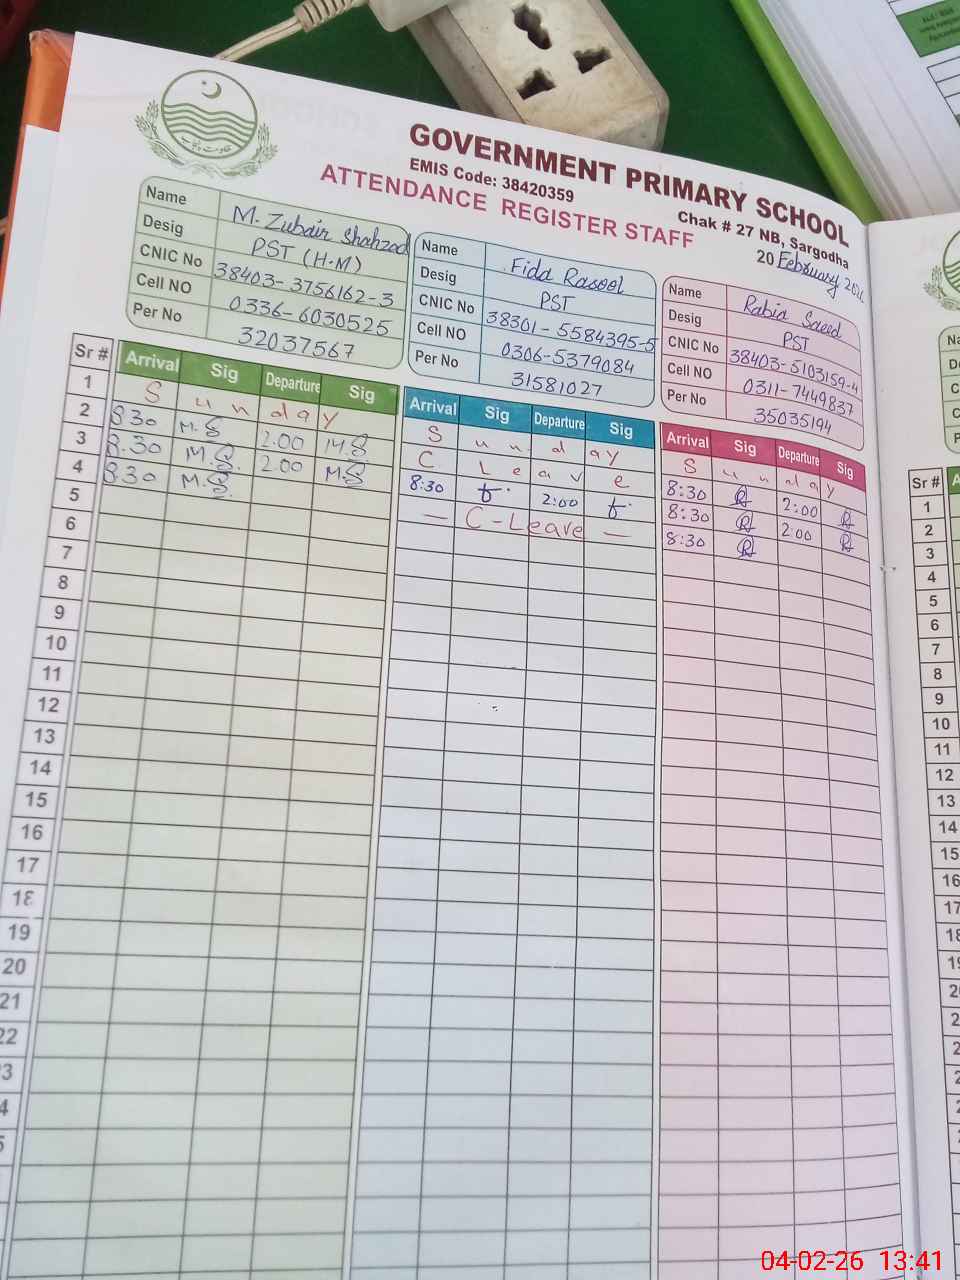 GOVERNMENT PRIMARY SCHOOL
EMIS Code: 38420359
Chak # 27 NB, Sargodha
ATTENDANCE REGISTER STAFF
20 February 2026
Name M. Zubair Shahzad
Desig PST (H.M)
CNIC No 38403-3756162-3
Cell NO 0336-6030525
Per No 32037567
Name Fida Rasool
Desig PST
CNIC No 38301-5584395-5
Cell NO 0306-5379084
Per No 31581027
Name Rabia Saeed
Desig PST
CNIC No 38403-5103159-4
Cell NO 0311-7449837
Per No 35035194
Sr # Arrival Sig Departure Sig Arrival Sig Departure Sig Arrival Sig Departure Sig
1 Sunday Sunday Sunday
2 8:30 M.S 2.00 M.S C Leave 8:30 R 2:00 R
3 8.30 M.S. 2.00 M.S 8:30 f. 2:00 f. 8:30 R 2:00 R
4 8:30 M.S. — C-Leave — 8:30 R
5
6
7
8
9
10
11
12
13
14
15
16
17
18
19
20
21
22
3
4
5
Sr #
1
2
3
4
5
6
7
8
9
10
11
12
13
14
15
16
17
18
19
20
04-02-26 13:41